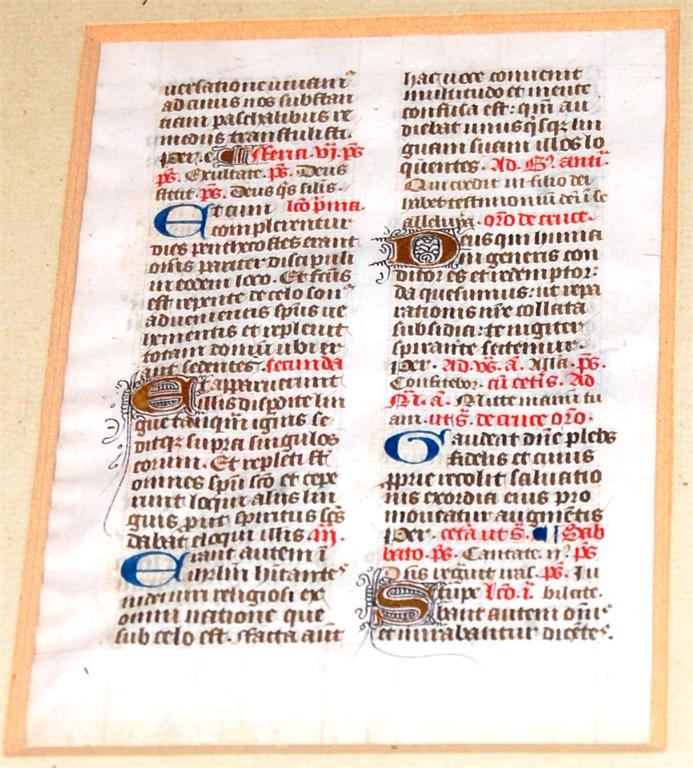 uersatione uiuam⁹
ad cuius nos substan
tiam paschalibus re
medijs transtulisti.
Per. e ¶ Feria. vj. ps
ps. Exultate. ps. Deus
stetit. ps. Deus q̄s silis.
Et cum lc̄o p̄ma.
complerentur
dies penthecostes erant
om̄s pariter discipuli
in eodem loco. Et f̄cus
est repente de celo son⁹
aduenientis sp̄us ue
hementis et repleuit
totam domū ubi er
ant sedentes. secunda
Et apparuerunt
illis disp̄tite lin
gue tanq̄m ignis se
ditq̄ꝫ supra singulos
eorum. Et repleti s̄t
omnes sp̄u sc̄o et cepe
runt loqui alijs lin
guis prut spiritus sc̄s
dabat eloqui illis. iij.
Erant autem ī
ihrlm̄ hītantes
iudei uiri religiosi ex
omni natione que
sub celo est. Facta aut̄
hac uoce conuenit
multitudo et mente
confusa est: qm̄ au
diebat unusq̄sqꝫ lin
guam suam illos lo
quentes. Ad B̄. anti.
Qui credit in filio dei
habet testimonium dei ī se
alleluya. or̄o de cruce.
Deus qui huma
ni generis con
ditor es et redemptor:
da quesumus: ut repa
rationis nr̄e collata
subsidia: te iugiter
spirante sectemur.
Per. Ad vs. ā. Alla. ps.
Confitebor. cū cet̄is. Ad
M̄. ā. Mitte manū tu
am. ut s̄. de cruce or̄o.
Gaudeat dn̄e plebs
fidelis et cuius
ꝓprie recolit saluatio
nis exordia eius pro
moueatur augmentis
Per. cet̄a ut s̄. ¶ Sab
bato. ps. Cantate. ij. ps
Dn̄s regn̄it iras. ps. Iu
Stupe lc̄o. ī. bilate.
bant autem om̄s
et mirabantur dicētes.